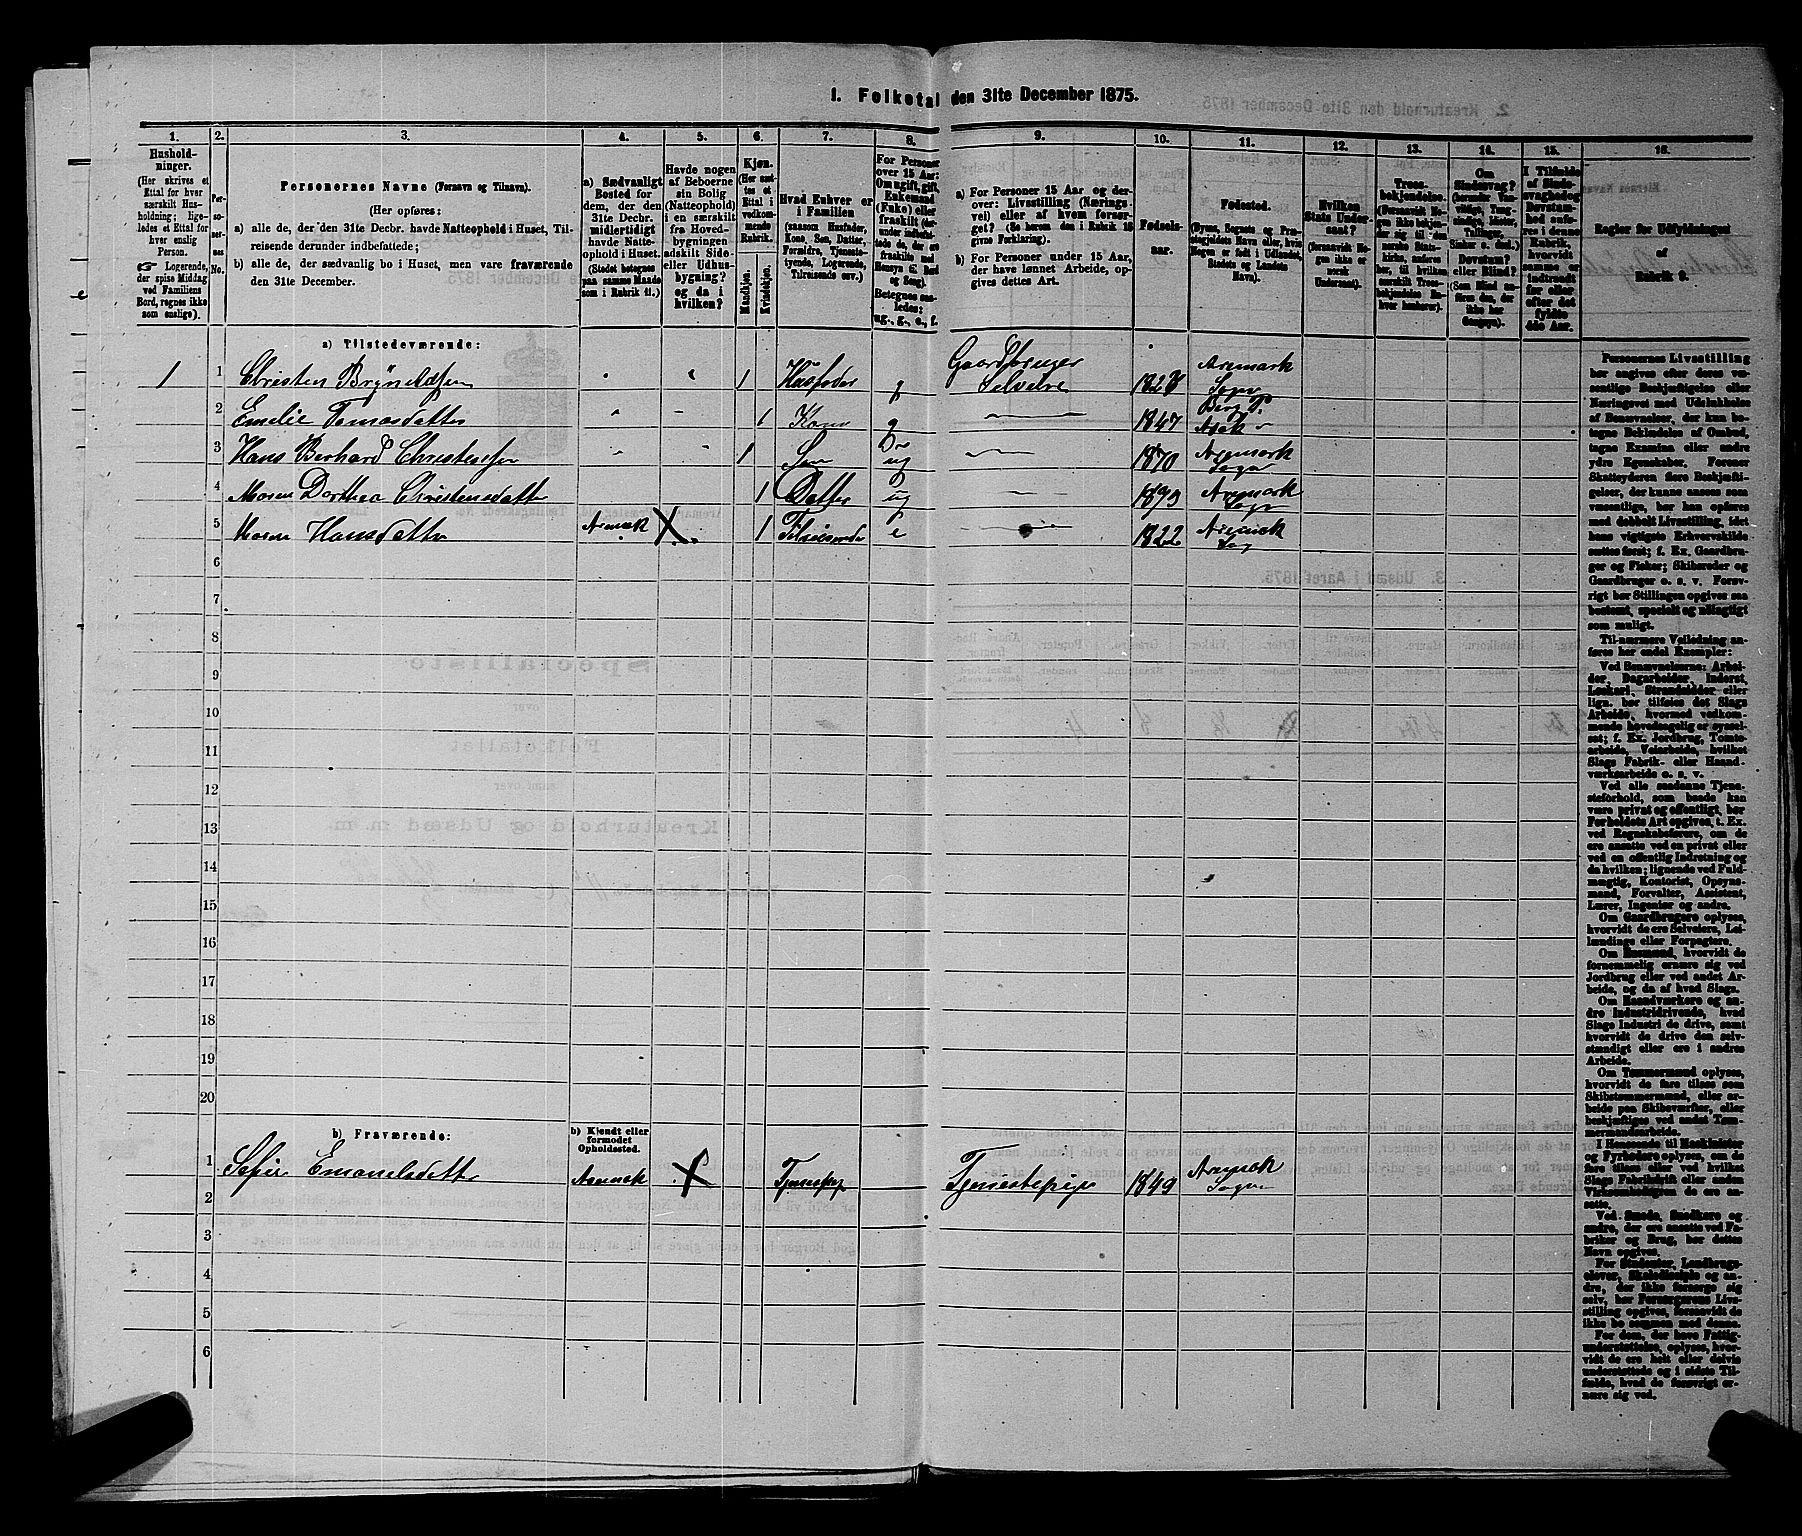 1. Folketal den 31te December 1875.
1.
2.
3.
4.
5.
6.
7.
8.
9.
10.
11.
12.
13.
14.
15.
16.
Hushold-
ninger.
(Her skrives et
Ettal for hver
særskilt Hus-
holdning; lige-
ledes et Ettal for
hver enslig
Person.
☞ Logerende,
der spise Middag
ved Familiens
Bord, regnes ikke
som enslige).
Per-
so-
ner-
nes
No.
Personernes Navne (Fornavn og Tilnavn).
(Her opføres:
a) alle de, der den 31te Decbr. havde Natteophold i Huset, Til-
reisende derunder indbefattede;
b) alle de, der sædvanlig bo i Huset, men vare fraværende
den 31te December.
a) Sædvanligt
Bosted for
dem, der den
31te Decbr.
midlertidigt
havde Natte-
ophold i Huset.
(Stedet betegnes
paa samme Maade
som i Rubrik 11.)
Havde nogen
af Beboerne
sin Bolig
(Natteophold)
i en særskilt
fra Hoved-
bygningen
adskilt Side-
eller Udhus-
bygning?
og da i
hvilken?
Kjøn.
(Her sæt-
tes et
Ettal i
vedkom-
mende
Rubrik.
Mandkjøn.
Kvindekjøn.
Hvad Enhver er
i Familien
(saasom Husfader,
Kone, Søn, Datter,
Forældre, Tjeneste-
tyende, Logerende,
Tilreisende osv.)
For Personer
over 15 Aar:
Om ugift, gift,
Enkemand
(Enke) eller
fraskilt
Betegnes saa-
ledes:
ug., g., e., f.
a) For Personer 15 Aar og der-
over: Livsstilling (Nærings-
vei) eller af hvem forsør-
get? (Se herom den i Rubrik 16
givne Forklaring).
b) For Personer under 15 Aar,
der have lønnet Arbeide, op-
gives dettes Art.
Fødsels-
aar.
Fødested.
(Byens, Sognets og Præ-
stegjeldets Navn eller, hvis
Nogen er født i Udlandet,
Stedets og Landets
Navn).
Hvilken
Stats Under-
saat?
(forsaavidt No-
gen ikke er
norsk
Undersaat).
Troes-
bekjendelse.
(Forsaavidt No-
gen ikke bekjen-
der sig til den
norske Stats-
kirke, anføres
her, til hvilken
særskilt Troes-
bekjendelse En-
hver henhører).
Om
Sindssvag?
Døvstum?
eller Blind?
(Som Blind an-
føres den, der
ikke har
Gangsyn).
I Tilfælde
af Sinds-
svaghed og
Døvstum-
hed anfø-
res i denne
Rubrik,
hvorvidt
samme er
indtraadt
før eller
efter det
fyldte
4de Aar.
Regler for Udfyldningen
af
Rubrik 9.
a) Tilstedeværende:
1 1 Christen Bryn 1 Husfader g Gaardbruger Selveier 1828 Aremark Sogn
2 Emelie Tomasdatter 1 Kone g 1847 Berg P. Asak
3 Hans Berhard Christensen 1 Søn ug 1870 Aremark Sogn
4 Maren Dorthea Christensdatter 1 Datter ug 1873 Aremark Sogn
5 Maren Hansdatter Aremark X 1 e 1822 Aremark Sogn
6
7
8
9
10
11
12
13
14
15
16
17
18
19
20
b) Fraværende:
b) Kjendt eller
formodet
Opholdssted.
1 Sofie Emanuelsdatter Aremark X Tjenestepige Tjenestepige 1849 Aremark Sogn
2
3
4
5
6
Personernes Livsstilling
bør angives efter deres væ-
sentlige Beskjæftigelse eller
Næringsvei med Udelukkelse
af Benævnelser, der kun be-
tegne Beklædelse af Ombud,
tagne Examina eller andre
ydre Egenskaber. Forener
Skatteyderen flere Beskjæfti-
gelser, der kunne ansees som
væsentlige, bør han opføres
med dobbelt Livsstilling, idet
hans vigtigste Erhvervskilde
sættes først; f. Ex. Gaardbru-
ger og Fisker; Skibsreder og
Gaardbruger o. s. v. Forøv-
rigt bør Stillingen opgives saa
bestemt, specielt og nøiagtigt
som muligt.
Til nærmere Veiledning an-
føres her endel Exempler:
Ved Benævnelserne: Arbei-
der, Dagarbeider, Inderst,
Løskarl, Strandsidder eller
lign. bør tilføies det Slags
Arbeide, hvormed vedkom-
mende hovedsagelig er syssel-
sat; f. Ex. Jordbrug, Tomte-
arbeide, Veiarbeide, hvilket
Slags Fabrik- eller Haand-
værksarbeide o. s. v.
Ved alle saadanne Tjene-
steforhold, som baade kan
være privat og offentligt, bør
Forholdets Art opgives, t. Ex.
ved Regnskabsførere, om de
ere ansatte ved en privat eller
ved en offentlig Indretning og
da hvilken; lignende ved Fuld-
mægtig, Kontorist, Opsyns-
mand, Forvalter, Assistent,
Lærer, Ingeniør og andre.
Om Gaardbrugere oplyses,
hvorvidt de ere Selveiere, Lei-
lændinge eller Forpagtere.
Om Husmænd, hvorvidt de
fornemmelig ernære sig ved
Jordbrug eller ved andet Ar-
beide, og da af hvad Slags.
Om Haandværkere og an-
dre Industridrivende, hvad
Slags Industri de drive, samt
hvorvidt de drive den selv-
stændigt eller ere i andres
Arbeide.
Om Tømmermænd oplyses,
hvorvidt de fare tilsøs som
Skibstømmermænd, eller ar-
beide paa Skibsværfter, eller
beskjæftiges ved andet Tøm-
mermandsarbeide.
I Henseende til Maskinister
og Fyrbødere oplyses, om de
fare tilsøs eller ved hvilket
Slags Fabrikdrift eller anden
Virksomhed de ere an-
satte.
Ved Smede, Snedkere og
andre, der ere ansatte ved Fa-
briker og Brug, bør dettes
Navn opgives.
For Studenter, Landbrugs-
elever, Skoledisciple og an-
dre, der ikke forsørge sig
selv, bør Forsørgerens Livs-
stilling opgives, forsaavidt de
ikke bo sammen med denne.
For dem, der have Fattig-
understøttelse, oplyses, hvor-
vidt de ere helt eller delvis
understøttede og i sidste Til-
fælde, hvad de forøvrigt er-
nære sig ved.